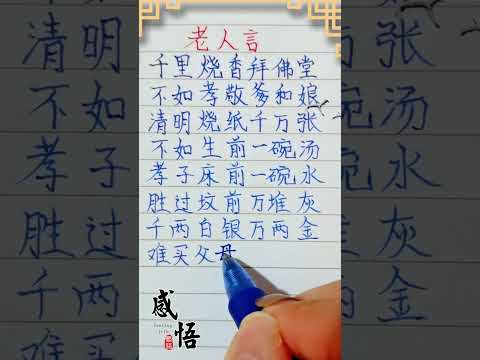 老人言
千里烧香拜佛堂
不如孝敬爹和娘
清明烧纸千万张
不如生前一碗汤
孝子床前一碗水
胜过坟前万堆灰
千两白银万两金
难买父母
感悟